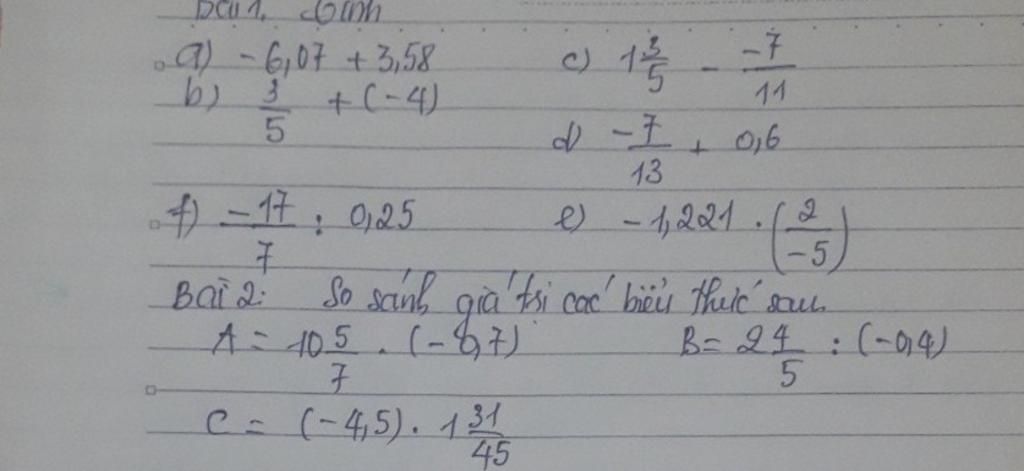 Bài 1. Tính
a) -6,07 + 3,58 c) 1 3/5 - -7/11
b) 3/5 + (-4)
d) -7/13 + 0,6
f) -17/7 : 0,25 e) -1,221 . (2/-5)
Bài 2: So sánh giá trị các biểu thức sau
A = 10 5/7 . (-0,7) B = 2 4/5 : (-0,4)
C = (-4,5) . 1 31/45